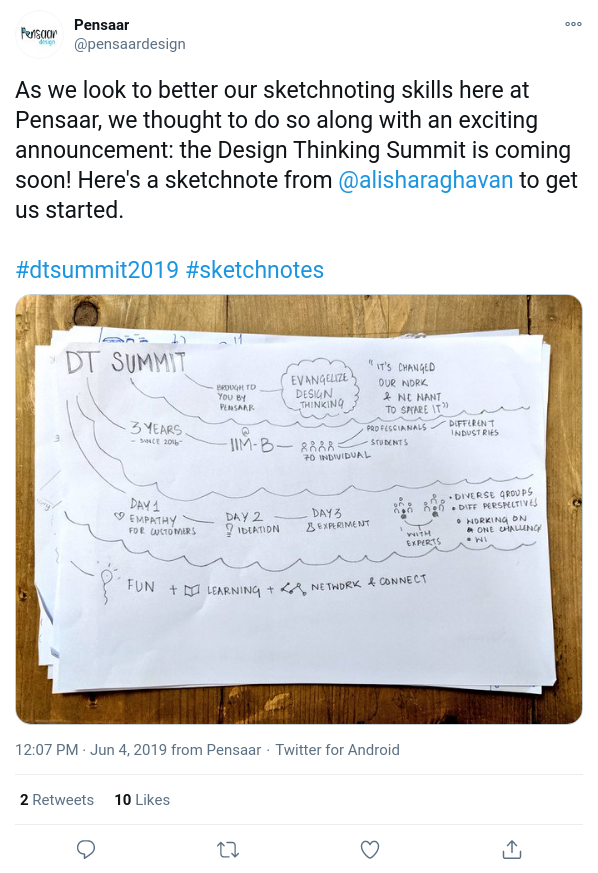 Pensaar
design
Pensaar
@pensaardesign
As we look to better our sketchnoting skills here at
Pensaar, we thought to do so along with an exciting
announcement: the Design Thinking Summit is coming
soon! Here's a sketchnote from @alisharaghavan to get
us started.
#dtsummit2019 #sketchnotes
DT SUMMIT
BROUGHT TO
YOU BY
PENSAAR
EVANGELIZE
DESIGN
THINKING
"IT'S CHANGED
OUR WORK
& WE WANT
TO SHARE IT"
3 YEARS
- SINCE 2016-
IIM-B
70 INDIVIDUAL
PROFESSIONALS
STUDENTS
DIFFERENT
INDUSTRIES
DAY 1
EMPATHY
FOR CUSTOMERS
DAY 2
IDEATION
DAY 3
EXPERIMENT
WITH
EXPERTS
• DIVERSE GROUPS
• DIFF PERSPECTIVES
• WORKING ON
ONE CHALLENGE
FUN + LEARNING + NETWORK & CONNECT
12:07 PM · Jun 4, 2019 from Pensaar · Twitter for Android
2 Retweets 10 Likes